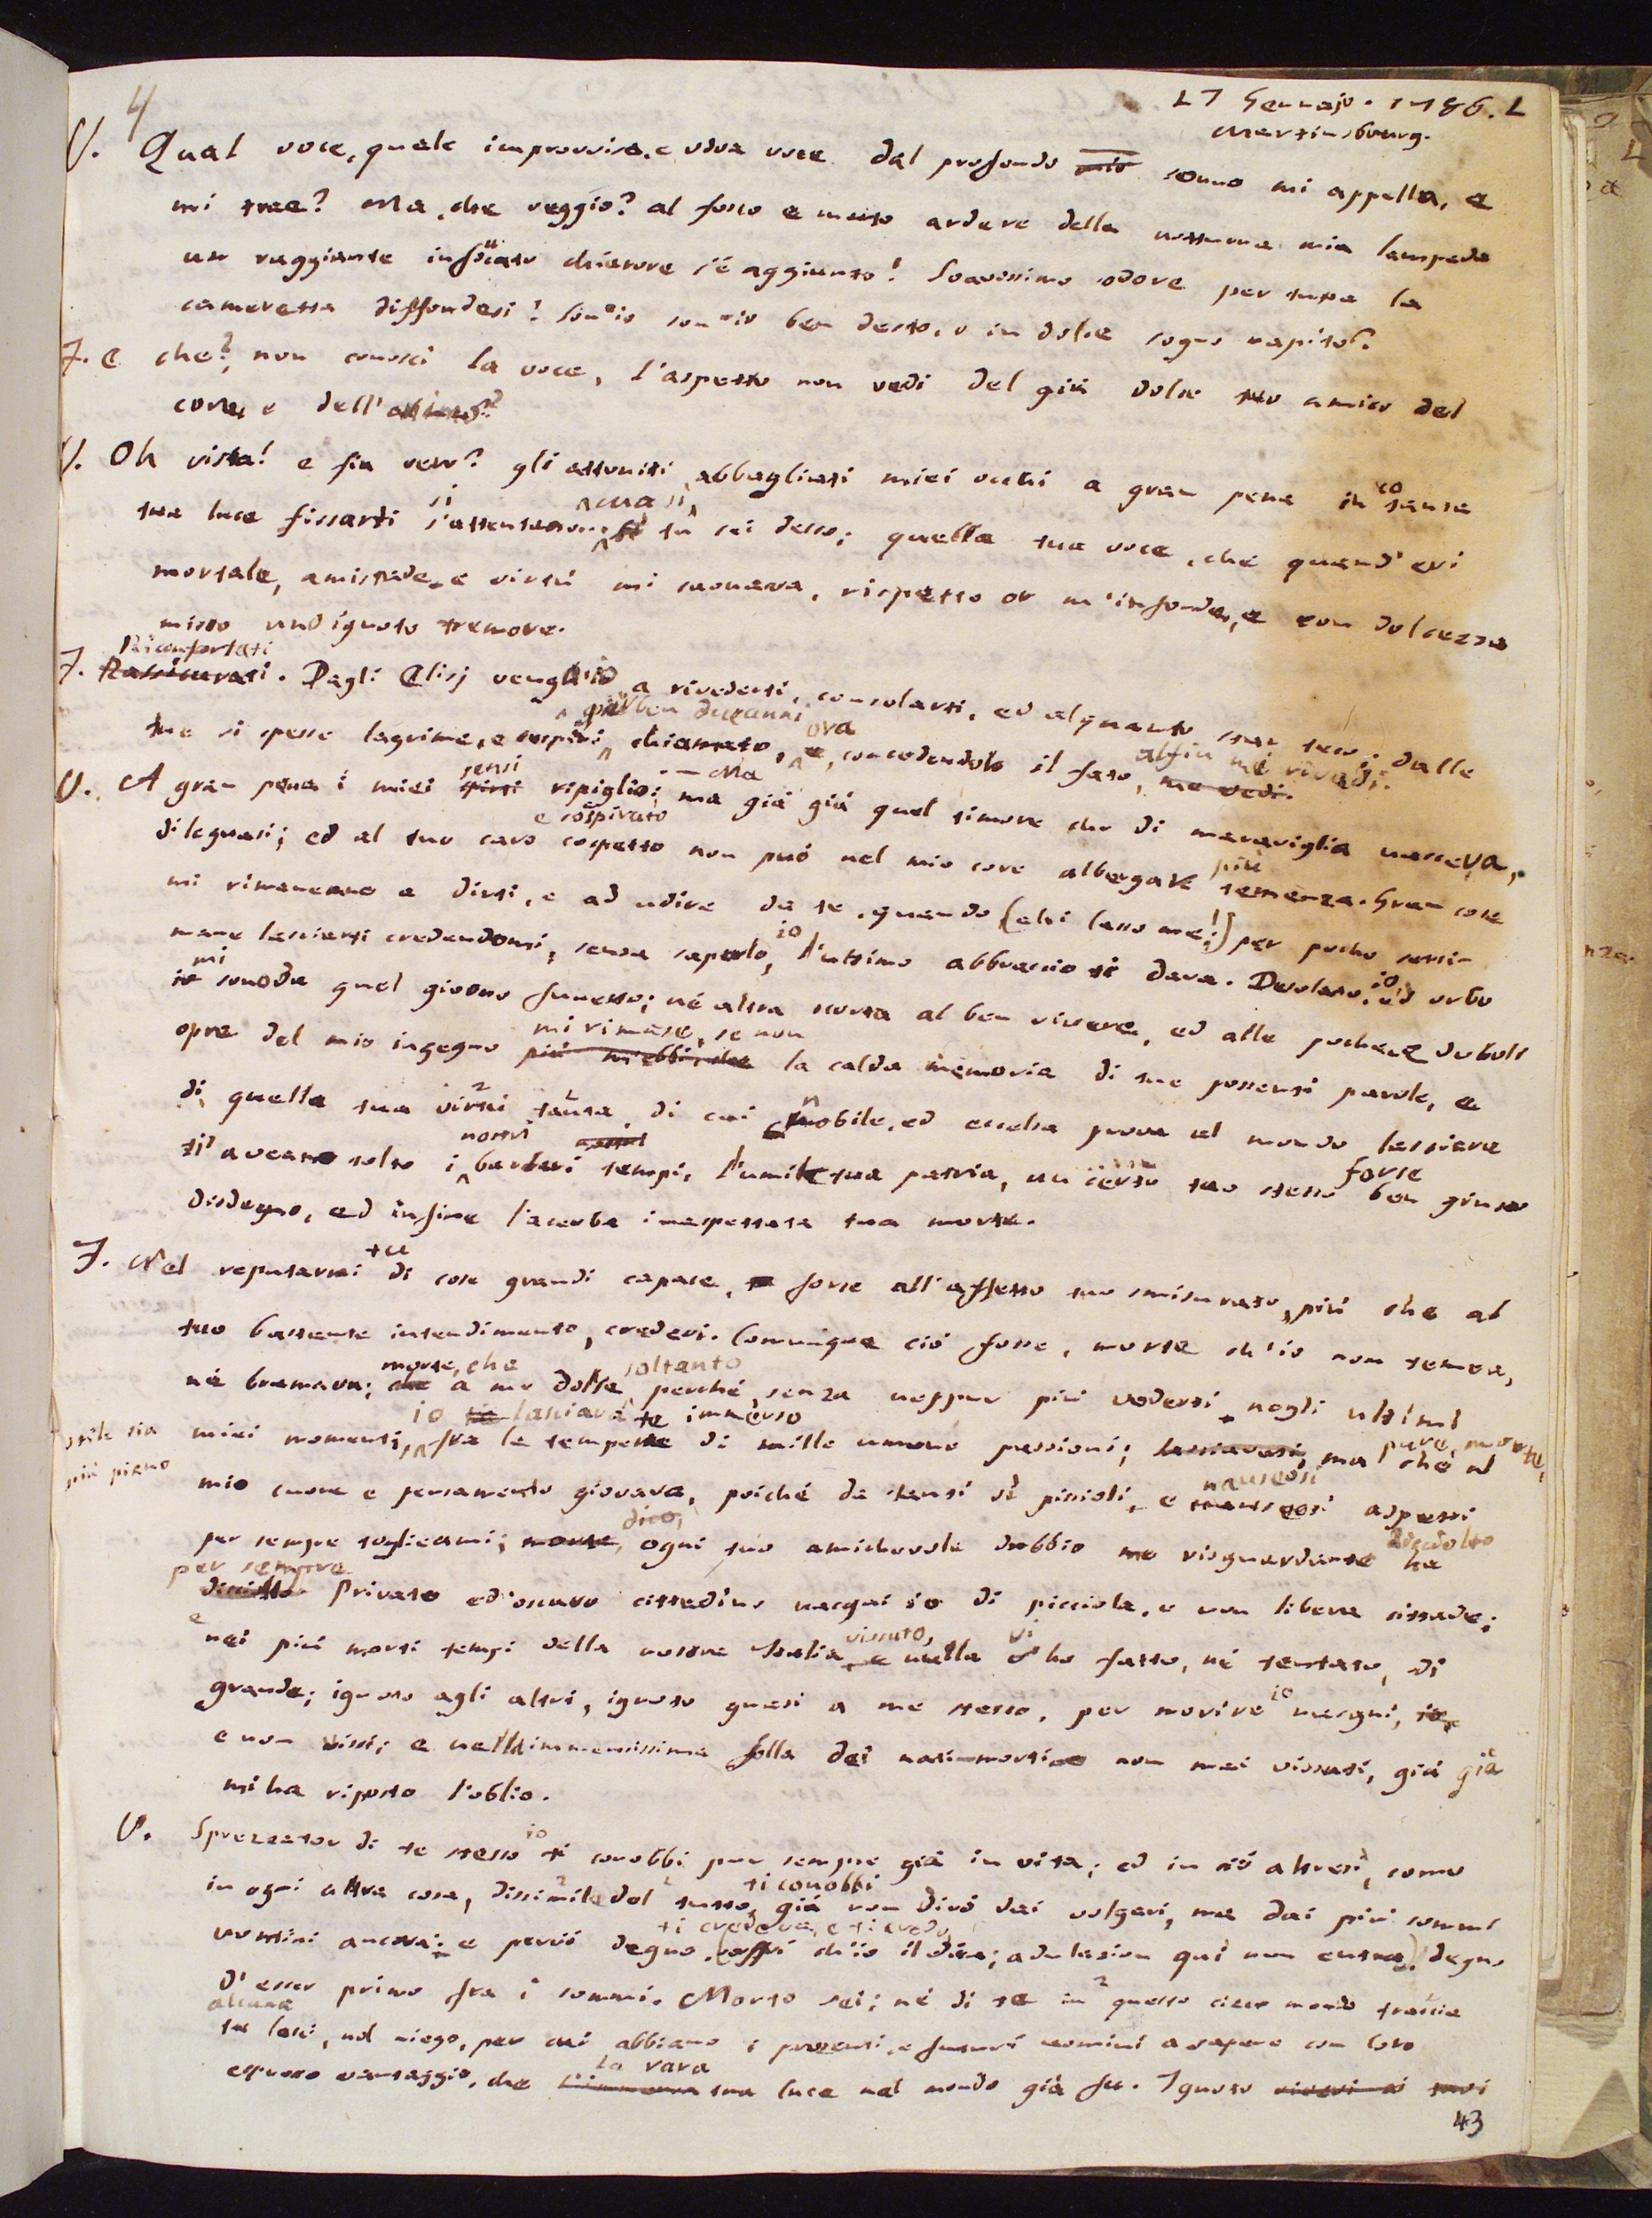 4
17 Gennajo. 1786. L
Martinsbourg.
V. Qual voce, quale improvvisa, e viva voce dal profondo mio sonno mi appella, e
mi trae? Ma, che veggio? al fosco e muto ardere della notturna mia lampada
un raggiante infuocato chiarore s'è aggiunto! Soavissimo odore per tutta la
cameretta diffondesi! Son'io son'io ben desto, o in dolce sogno rapito?
F. E che? non conosci la voce, l'aspetto non vedi del già dolce tuo amico del
core, e dell'animo?
V. Oh vista! e fia vero? gli attoniti abbagliati miei occhi a gran pena in co tanta
si ma si
tua luce fissarti s'attentano; tu sei desso; quella tua voce, che quand'eri
mortale, amistade, e virtù mi suonava, rispetto or m'infonde, e con dolcezza
misto und ignoto tremore.
Riconfortati
F. Rassicurati. Dagli Elisj vengh'io a rivederti, consolarti, ed alquanto star teco; dalle
già ben due anni ora alfin mi rivedi.
tue si spesse lagrime, e sospiri chiamato, e, concedendolo il fato, me vedi.
sensi — Ma
V. A gran pena i miei spirti ripiglio; ma già già quel timore che di maraviglia nasceva,
e sospirato più
dileguasi; ed al tuo caro cospetto non può nel mio core albergare temenza. Gran cose
mi rimaneano a dirti, e ad udire da te, quando (ahi lasso me!) per poche setti-
io
mane lasciarti credendomi, senza saperlo, l'ultimo abbraccio ti dava. Desolato, ed orbo
mi io
io sono da quel giorno funesto; nè altra scorta al ben vivere, ed alle poche, e deboli
mi rimase, se non
opre del mio ingegno più m'ebbi, che la calda memoria di tue possenti parole, e
di quella tua virtù tanta, di cui nobile, ed eccelsa prova al mondo lasciare
nostri forse
ti aveano tolto i barbari tempi, l'umile tua patria, un certo tuo stesso ben giusto
disdegno, ed infine l'acerba inaspettata tua morte.
tu
F. Nel reputarmi di cose grandi capace, forse all'affetto tuo smisurato, più che al
tuo bastante intendimento, credevi. Comunque ciò fosse, morte ch'io non temea,
morte, che soltanto
nè bramava; che a me dolse, perché, senza neppur più vederti, negli ultimi
io lasciava te immerso pure, morte,
miei momenti, fra le tempeste di mille umane passioni; lasciavati, ma che al
utile sia
più piano
nauseosi
mio cuore e pensamento giovava, poiché da tanti sì piccioli, e nauseosi aspetti
dico, disciolto
per sempre toglieami; morte, ogni tuo amichevole dubbio me risguardante ha
per sempre
disciolto. Privato ed oscuro cittadino nacqui io di picciola, e non libera cittade;
e vissuto, vi
nei più morti tempi della nostra Italia, e nulla ho fatto, nè tentato, di
io
grande; ignoto agli altri, ignoto quasi a me stesso, per morire nacqui, io,
e non vissi; e nella immensissima folla dei nati-morti non mai vissuti, già già
mi ha riposto l'oblio.
io
V. Sprezzator di te stesso ti conobbi pur sempre già in vita; ed in ciò altresì, come
ti conobbi
in ogni altra cosa, dissimile del tutto, già non dirò dai volgari, ma dai più sommi
ti credeva, e ti credo,
uomini ancora; e perciò degno, (soffri ch'io il dica; adulazion qui non entra) degno
d'esser primo fra i sommi. Morto sei; nè di te in questo cieco mondo traccia
alcuna
tu lasci, nol niego, per cui abbiano i presenti, e futuri uomini a sapere con loro
la rara
espresso vantaggio, che l'immensa tua luce nel mondo già fu. Ignoto
43